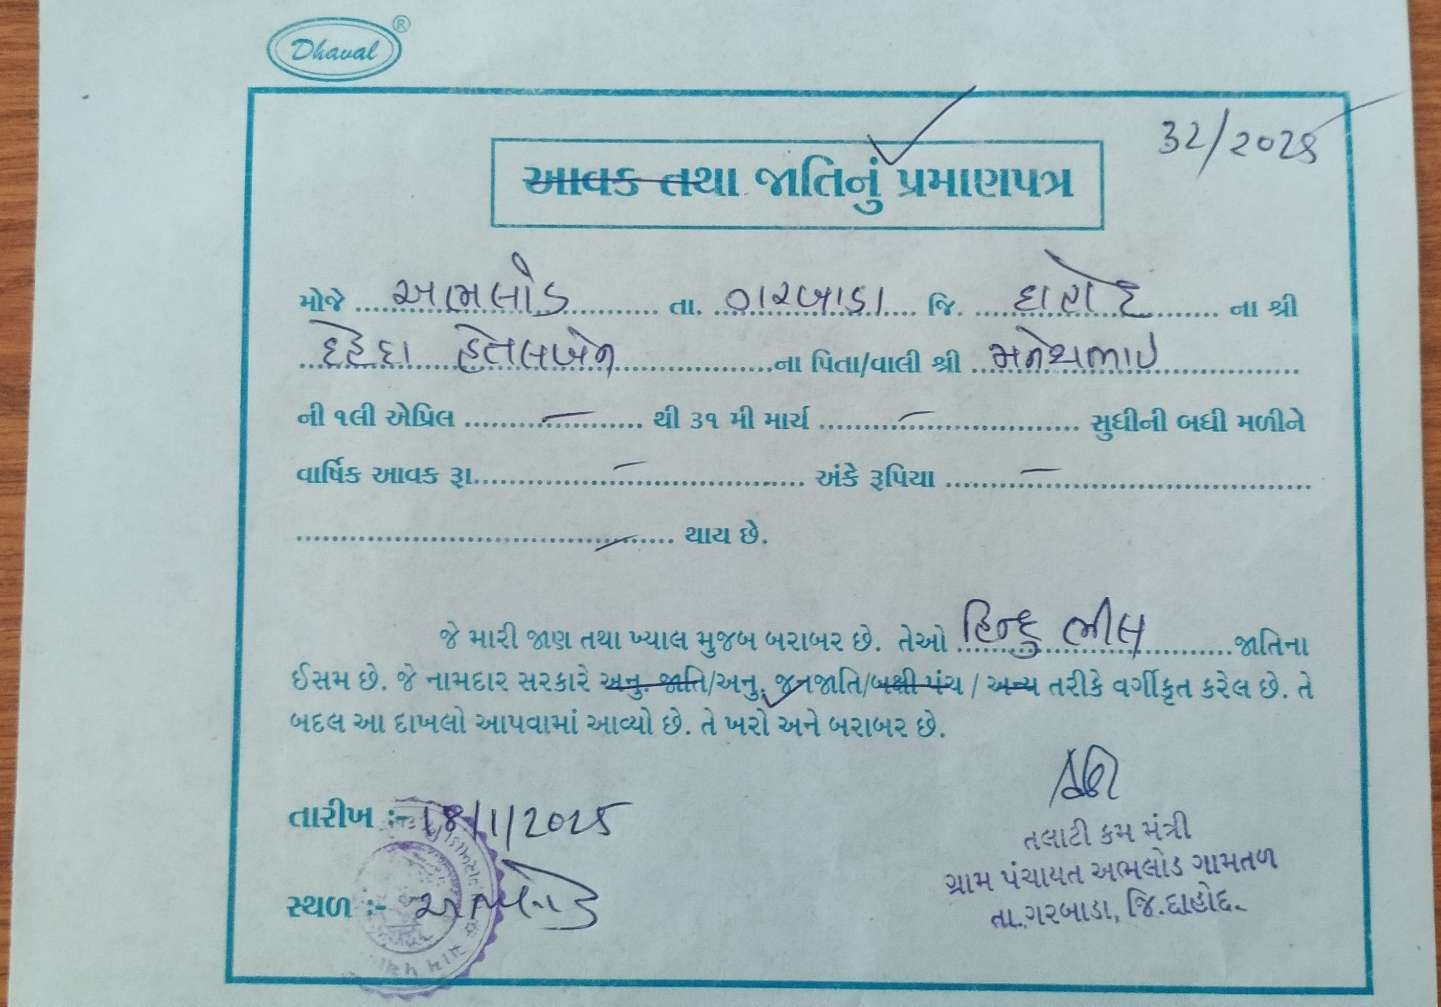 Dhaval ®
32/2025
આવક તથા જાતિનું પ્રમાણપત્ર
મોજે અભલોડ તા. ગરબાડા જિ. દાહોદ ના શ્રી
દહેદા હેતલબેન ના પિતા/વાલી શ્રી મનેશભાઈ
ની ૧લી એપ્રિલ — થી ૩૧ મી માર્ચ — સુધીની બધી મળીને
વાર્ષિક આવક રૂા. — અંકે રૂપિયા —
— થાય છે.
જે મારી જાણ તથા ખ્યાલ મુજબ બરાબર છે. તેઓ હિન્દુ ભીલ જાતિના
ઈસમ છે. જે નામદાર સરકારે અનુ. જાતિ/અનુ. જનજાતિ/બક્ષી પંચ / અન્ય તરીકે વર્ગીકૃત કરેલ છે. તે
બદલ આ દાખલો આપવામાં આવ્યો છે. તે ખરો અને બરાબર છે.
તારીખ :- 18/1/2025
સ્થળ :- અભલોડ
તલાટી કમ મંત્રી
ગ્રામ પંચાયત અભલોડ ગામતળ
તા.ગરબાડા, જિ.દાહોદ.